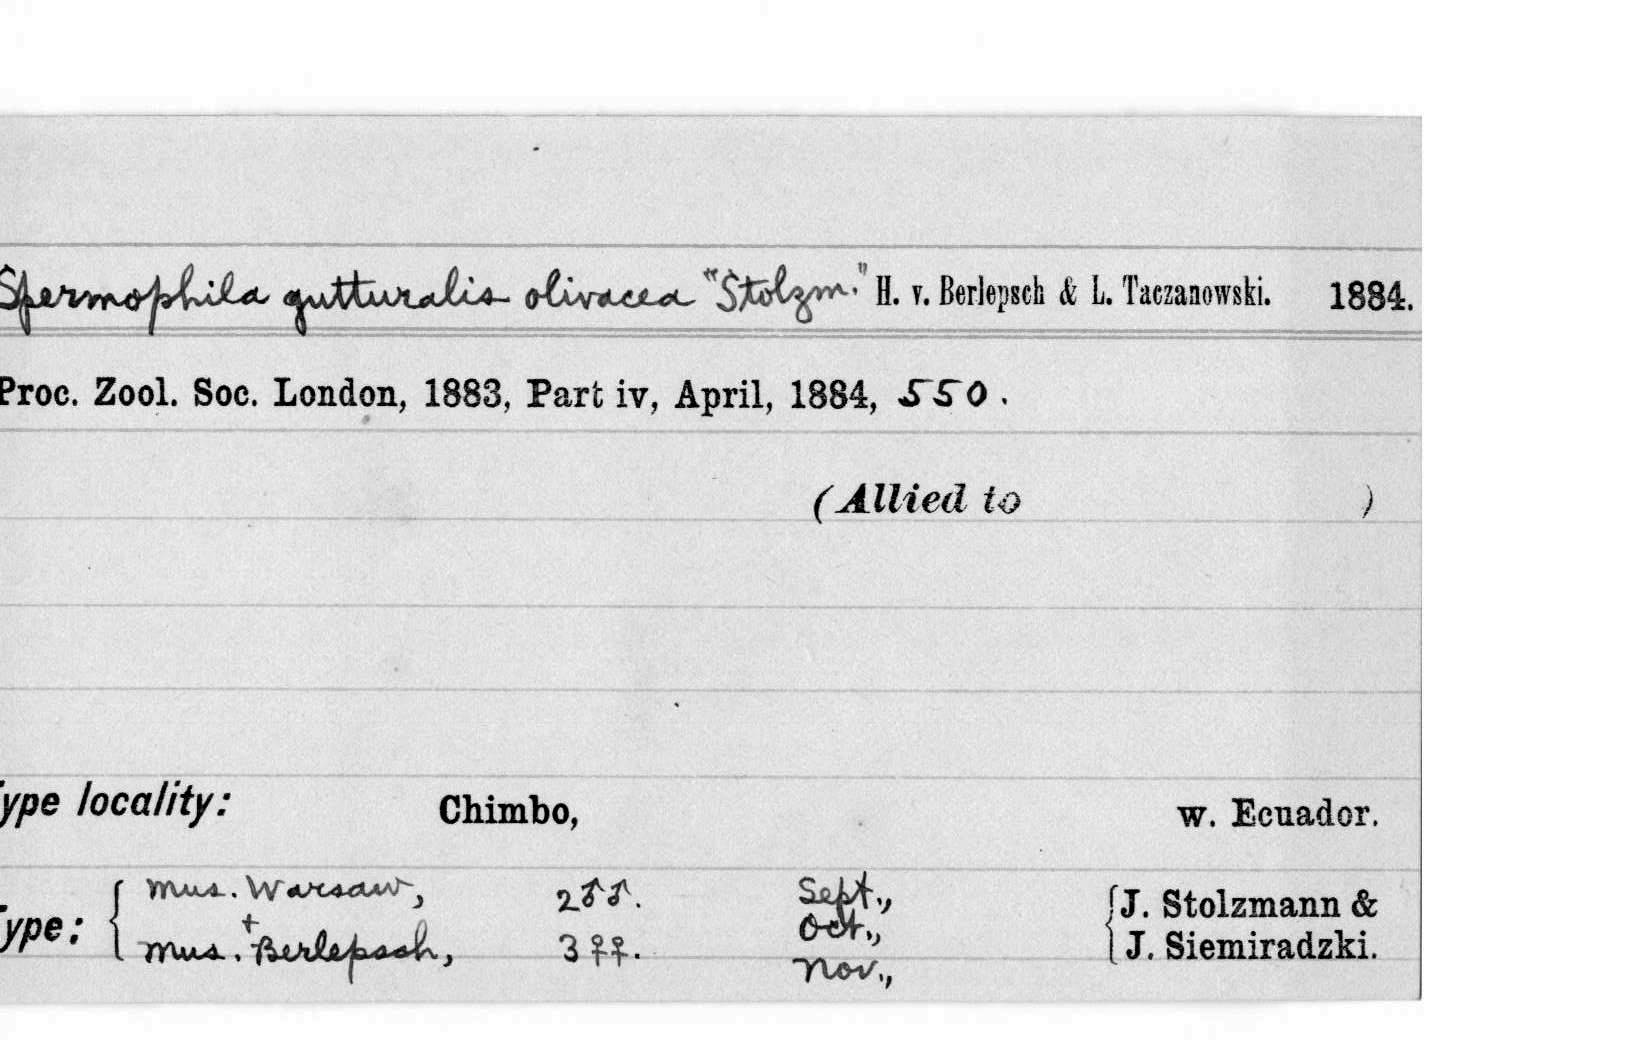 Spermophila gutturalis olivacea "Stolzm." H. v. Berlepsch & L. Taczanowski. 1884.
Proc. Zool. Soc. London, 1883, Part iv, April, 1884, 550.
(Allied to )
ype locality: Chimbo, w. Ecuador.
ype: { Mus. Warsaw, 2♂♂. Sept., { J. Stolzmann &
+ Oct.,
Mus. Berlepsch, 3♀♀. J. Siemiradzki.
Nov.,